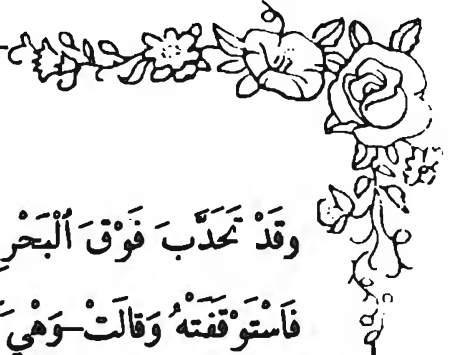 وقَدْ تَحَدَّبَ فَوْقَ ٱلْبَحْرِ
فَٱسْتَوْقَفَتْهُ وَقالَتْ—وَهْيَ